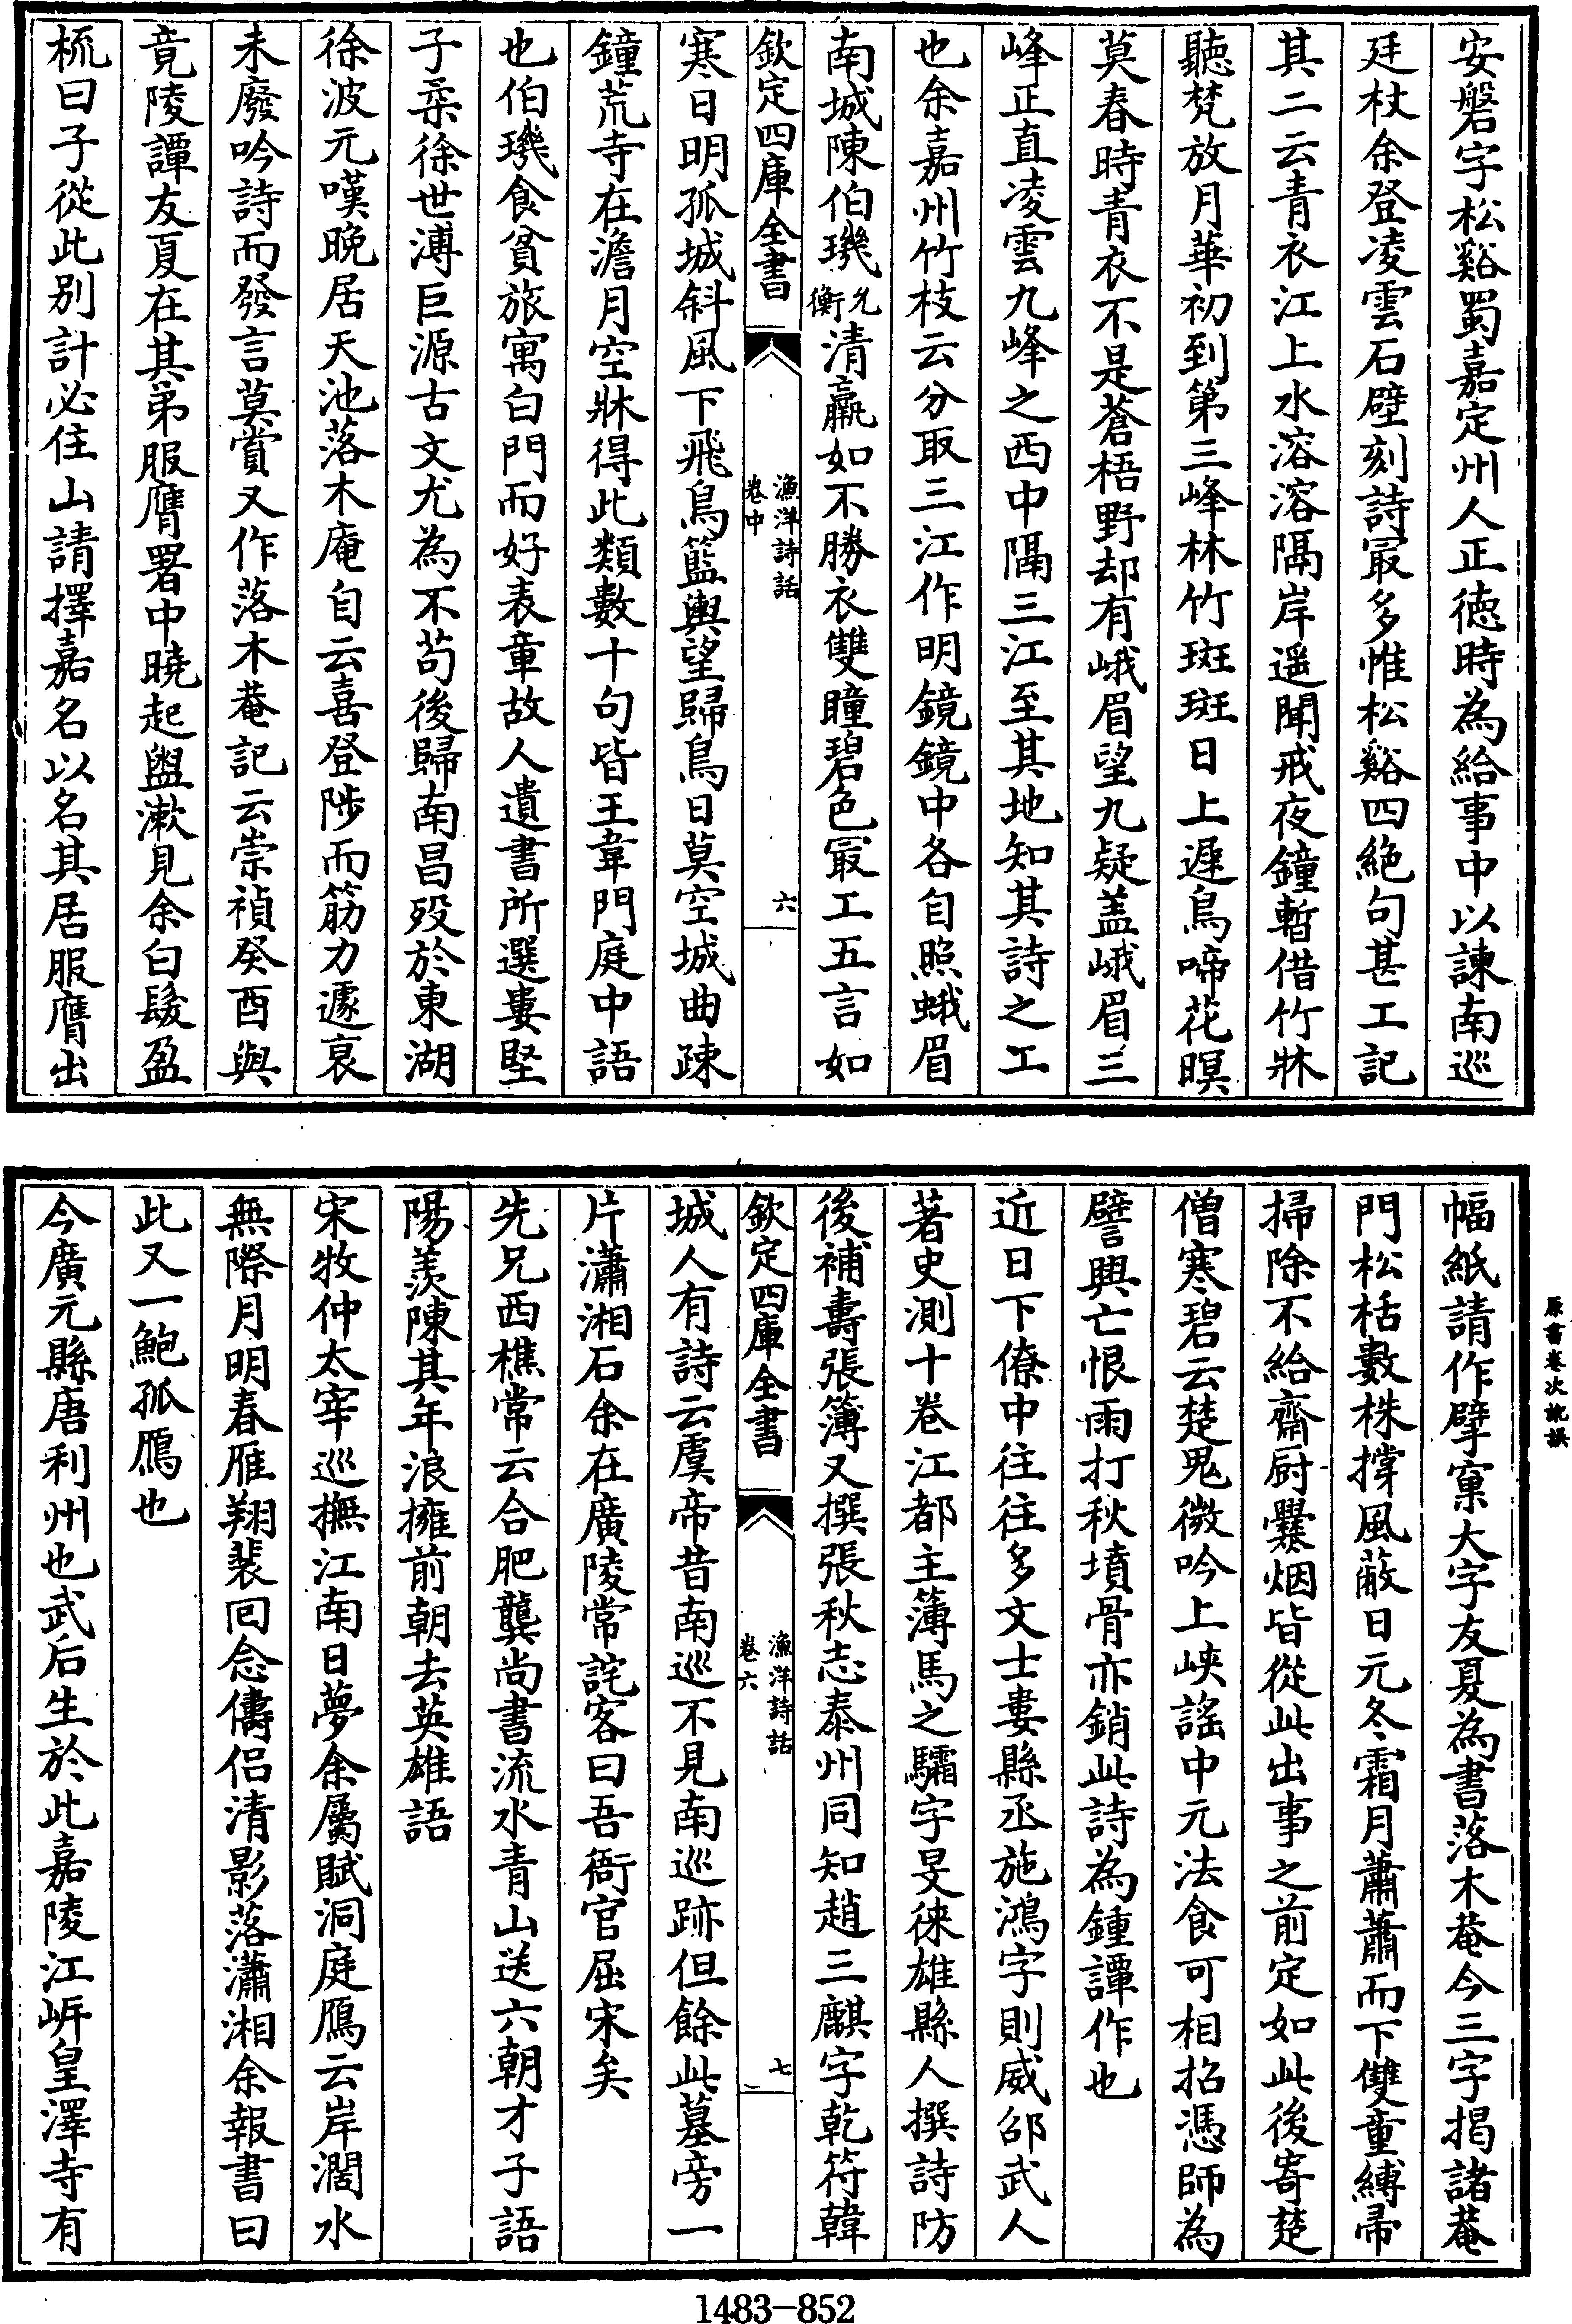 安磐字松谿蜀嘉定州人正徳時為給事中以諫南巡
廷杖余登凌雲石壁刻詩㝡多惟松谿四絶句甚工記
其二云青衣江上水溶溶隔岸遥聞戒夜鐘暫借竹牀
聽梵放月華初到第三峰林竹斑斑日上遲鳥啼花暝
莫春時青衣不是蒼梧野却有峨眉望九疑盖峨眉三
峰正直凌雲九峰之西中隔三江至其地知其詩之工
也余嘉州竹枝云分取三江作明鏡鏡中各自照蛾眉
南城陳伯璣允衡清羸如不勝衣雙瞳碧色㝡工五言如
欽定四庫全書
漁洋詩話
卷中
六
寒日明孤城斜風下飛鳥籃輿望歸鳥日莫空城曲疎
鐘荒寺在澹月空牀得此類數十句皆王韋門庭中語
也伯璣食貧旅寓白門而好表章故人遺書所選婁堅
子柔徐世溥巨源古文尤為不苟後歸南昌歿於東湖
徐波元嘆晩居天池落木庵自云喜登陟而筋力遽衰
未廢吟詩而發言莫賞又作落木菴記云崇禎癸酉與
竟陵譚友夏在其弟服膺署中曉起盥漱見余白髮盈
梳曰子從此別計必住山請擇嘉名以名其居服膺出
原書卷次訛誤
幅紙請作擘窠大字友夏為書落木菴今三字揭諸菴
門松栝數株撑風蔽日元冬霜月蕭蕭而下雙童縛帚
掃除不給齋厨爨烟皆從此出事之前定如此後寄楚
僧寒碧云楚鬼微吟上峽謡中元法食可相招憑師為
譬興亡恨雨打秋墳骨亦銷此詩為鍾譚作也
近日下僚中往往多文士婁縣丞施鴻字則威邵武人
著史測十卷江都主簿馬之驦字旻徠雄縣人撰詩防
後補夀張簿又撰張秋志泰州同知趙三麒字乾符韓
欽定四庫全書
漁洋詩話
卷六
七
城人有詩云虞帝昔南巡不見南巡跡但餘此墓旁一
片瀟湘石余在廣陵常詫客曰吾衙官屈宋矣
先兄西樵常云合肥龔尚書流水青山送六朝才子語
陽羨陳其年浪擁前朝去英雄語
宋牧仲太宰巡撫江南日夢余屬賦洞庭鴈云岸濶水
無際月明春雁翔裴回念儔侣清影落瀟湘余報書曰
此又一鮑孤鴈也
今廣元縣唐利州也武后生於此嘉陵江㟁皇澤寺有
1483-852